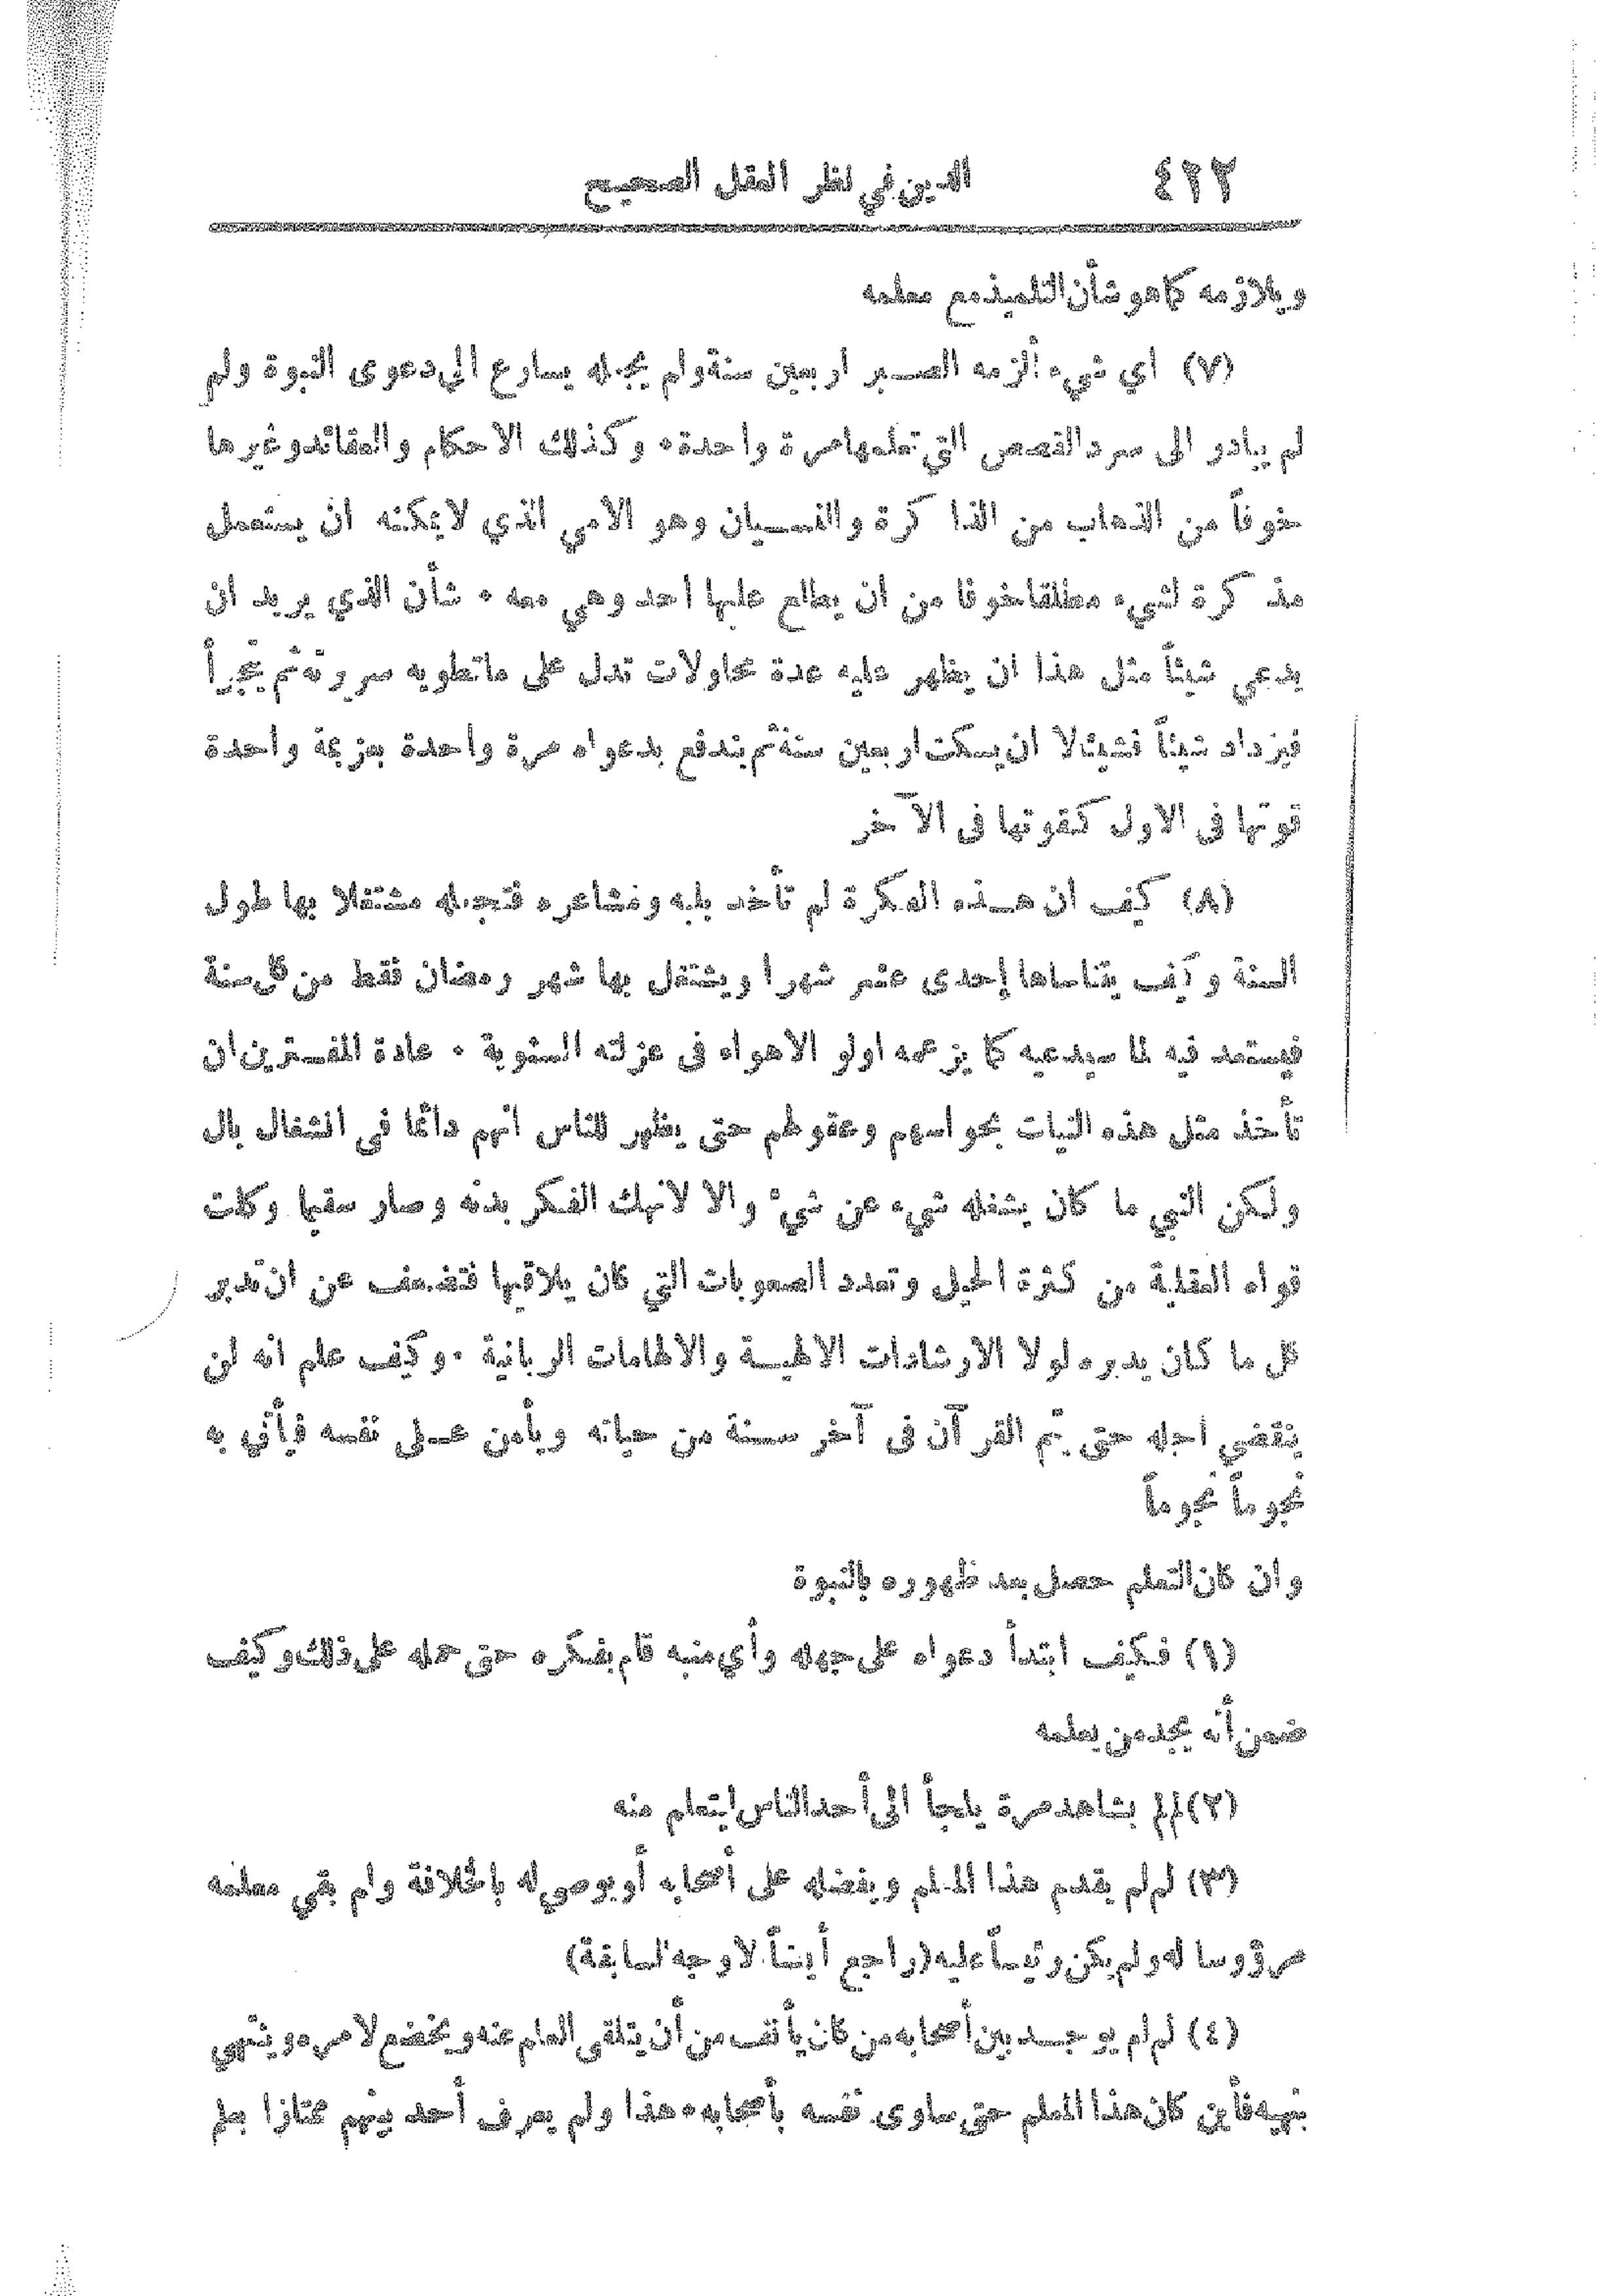 ٤٢٢ الدين في نظر العقل الصحيح
ويلازمه كما هو شأن التلميذ مع معلمه
(٧) اي شيء ألزمه الصبر اربعين سنة ولم يجعله يسارع الى دعوى النبوة ولم
لم يبادر الى سرد القصص التي تعلمها مرة واحدة ٠ وكذلك الاحكام والعقائد وغيرها
خوفاً من الذهاب من الذاكرة والنسيان وهو الامي الذي لا يمكنه ان يستعمل
مذكرة لشيء مطلقا خوفا من ان يطلع عليها احد وهي معه ٠ شأن الذي يريد ان
يدعي شيئاً مثل هذا ان يظهر عليه عدة محاولات تدل على ما تطويه سريرته ثم يتجرأ
فيزداد شيئاً فشيئا لا ان يسكت اربعين سنة ثم يندفع بدعواه مرة واحدة بعزيمة واحدة
قوتها فى الاول كقوتها فى الآخر
(٨) كيف ان هذه الفكرة لم تأخذ بلبه ومشاعره فتجعله مشتغلا بها طول
السنة وكيف يتناساها إحدى عشر شهرا ويشتغل بها شهر رمضان فقط من كل سنة
فيستعد فيه لما سيدعيه كما يزعمه اولو الاهواء فى عزلته السنوية ٠ عادة المفترين ان
تأخذ مثل هذه النيات بحواسهم وعقولهم حتى يظهر للناس انهم دائما في انشغال بال
ولكن النبي ما كان يشغله شيء عن شيء والا لانهك الفكر بدنه وصار سقيما وكلت
قواه العقلية من كثرة الحيل وتعدد الصعوبات التي كان يلاقيها فتضعف عن ان تدبر
كل ما كان يدبره لولا الارشادات الالهية والالهامات الربانية ٠ وكيف علم انه لن
ينقضي اجله حتى يتم القرآن فى آخر سنة من حياته ويأمن على نفسه فيأتي به
نجوماً نجوماً
وان كان التعلم حصل بعد ظهوره بالنبوة
(١) فكيف ابتدأ دعواه على جهله وأي منبه قام بفكره حتى حمله على ذلك وكيف
ضمن أنه يجد من يعلمه
(٢) لم لم يشاهد مرة يلجأ الى أحد الناس ليتعلم منه
(٣) لم لم يقدم هذا المعلم ويفضله على أصحابه أو يوصي له بالخلافة ولم بقي معلمه
مرؤوسا له ولم يكن رئيساً عليه (راجع أيضاً الاوجه السابقة)
(٤) لم لم يوجد بين أصحابه من كان يأنف من أن يتلقى العلم عنه ويخضع لامره وينتهي
بنهيه فأين كان هذا المعلم حتى ساوى نفسه بأصحابه ٠ هذا ولم يعرف أحد بينهم ممتازا بعلم